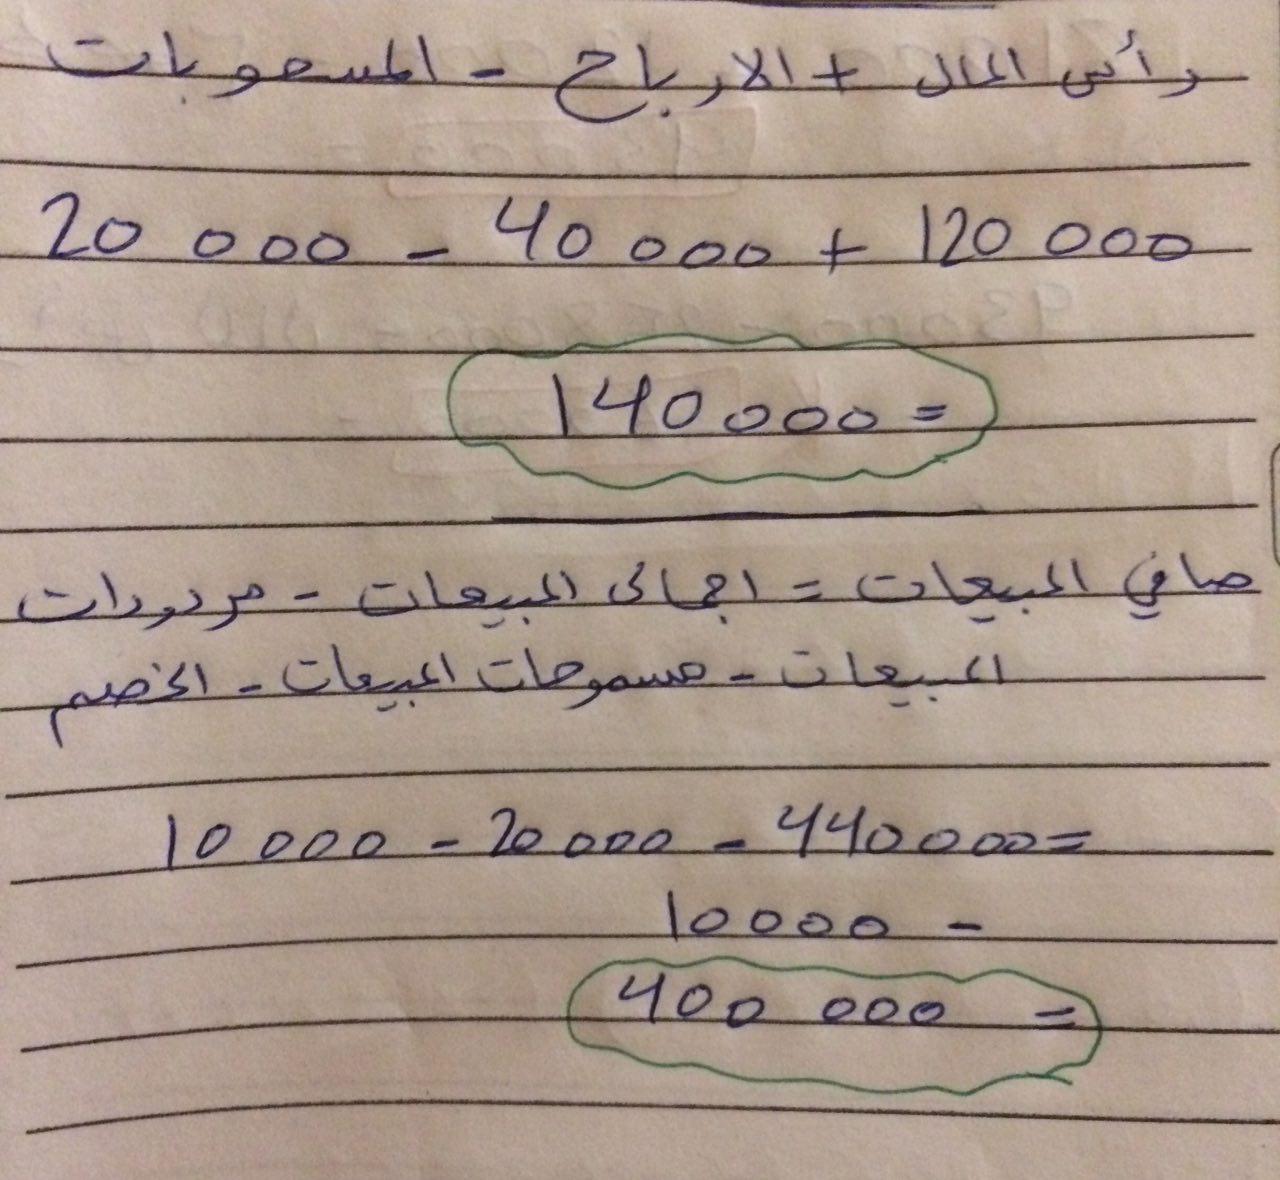 رأس المال + الارباح - المسحوبات
120 000 + 40 000 - 20 000
= 140 000
صافي المبيعات = اجمالى المبيعات - مردودات
المبيعات - مسموحات المبيعات - الخصم
= 440 000 - 20 000 - 10 000
- 10 000
= 400 000